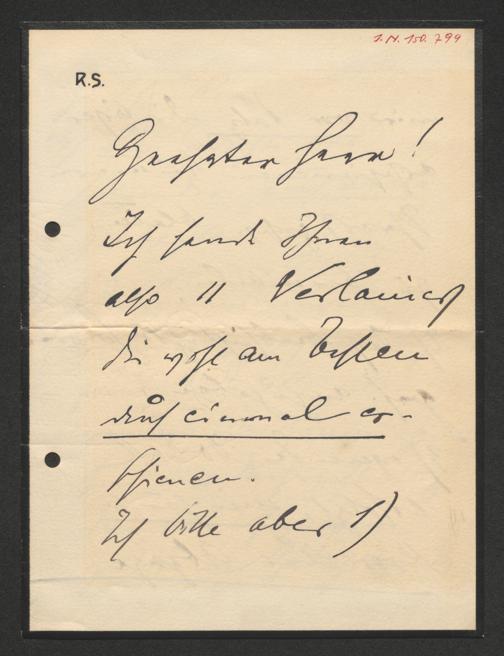 I.N. 150.799
R.S.
Geehrter Herr!
Ich sende Ihnen
also 11 Verlaines
die wohl am besten
auf einmal er-
schienen.
Ich bitte aber 1)